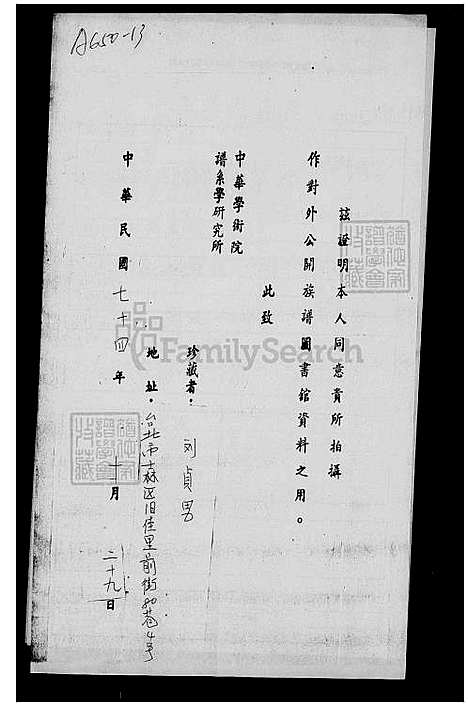 A650-13
茲證明本人同意貴所拍攝
作對外公開族譜圖書館資料之用。
此致
中華學術院
譜系學研究所
珍藏者：刘貞男
地址：台北市士林区旧佳里前街80巷4号
中華民國七十四年十一月二十九日
FamilySearch